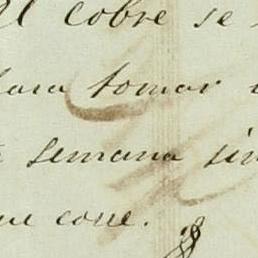 El cobre se
para tomar
semana sin
que corre.